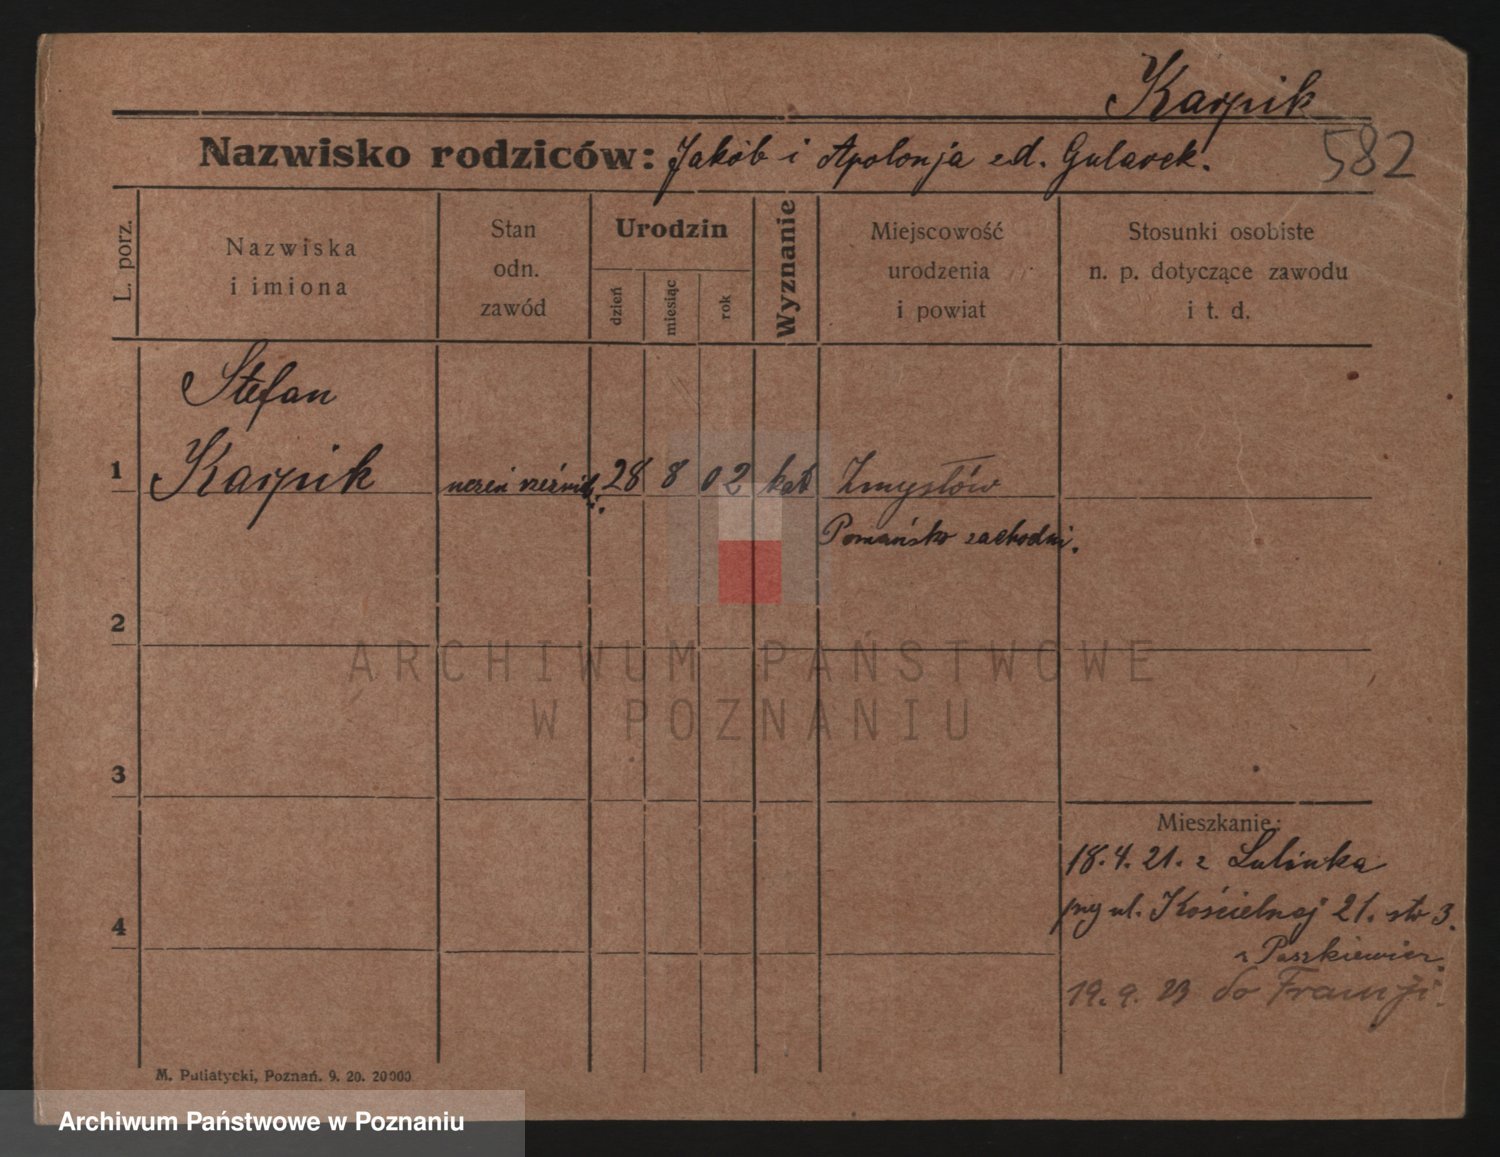 Karpik
582
Nazwisko rodziców: Jakób i Apolonja zd. Gularek.
L. porz.
Nazwiska
i imiona
Stan
odn.
zawód
Urodzin
dzień
miesiąc
rok
Wyznanie
Miejscowość
urodzenia
i powiat
Stosunki osobiste
n. p. dotyczące zawodu
i t. d.
Stefan
1 Karpik uczeń rzeźnik 28 8 02 kat Zmysłów
Poznańsko zachodni.
2
3
4
Mieszkanie:
18.4.21. z Lulinka
przy ul. Kościelnej 21. str 3.
Paszkiewicz
19. 9. 23 do Francji.
M. Putiatycki, Poznań. 9. 20. 20000
ARCHIWUM PAŃSTWOWE
W POZNANIU
Archiwum Państwowe w Poznaniu